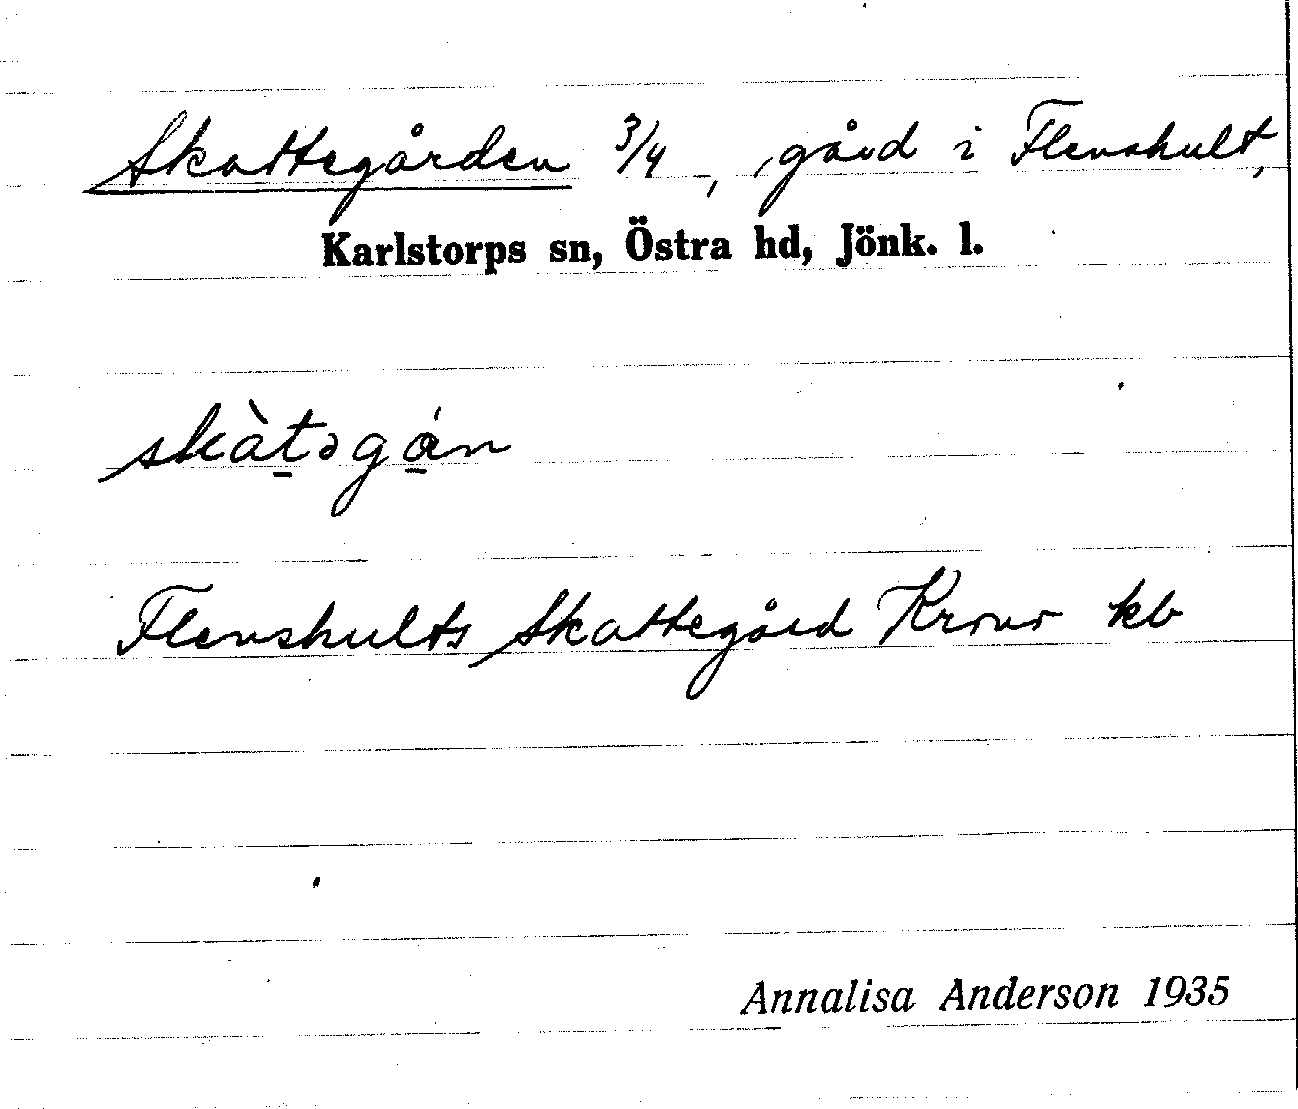 Skattegården 3/4, gård i Flenshult,
Karlstorps sn, Östra hd, Jönk. l.
skàt̲əgá̲n
Flenshults Skattegård Krono kb
Annalisa Anderson 1935